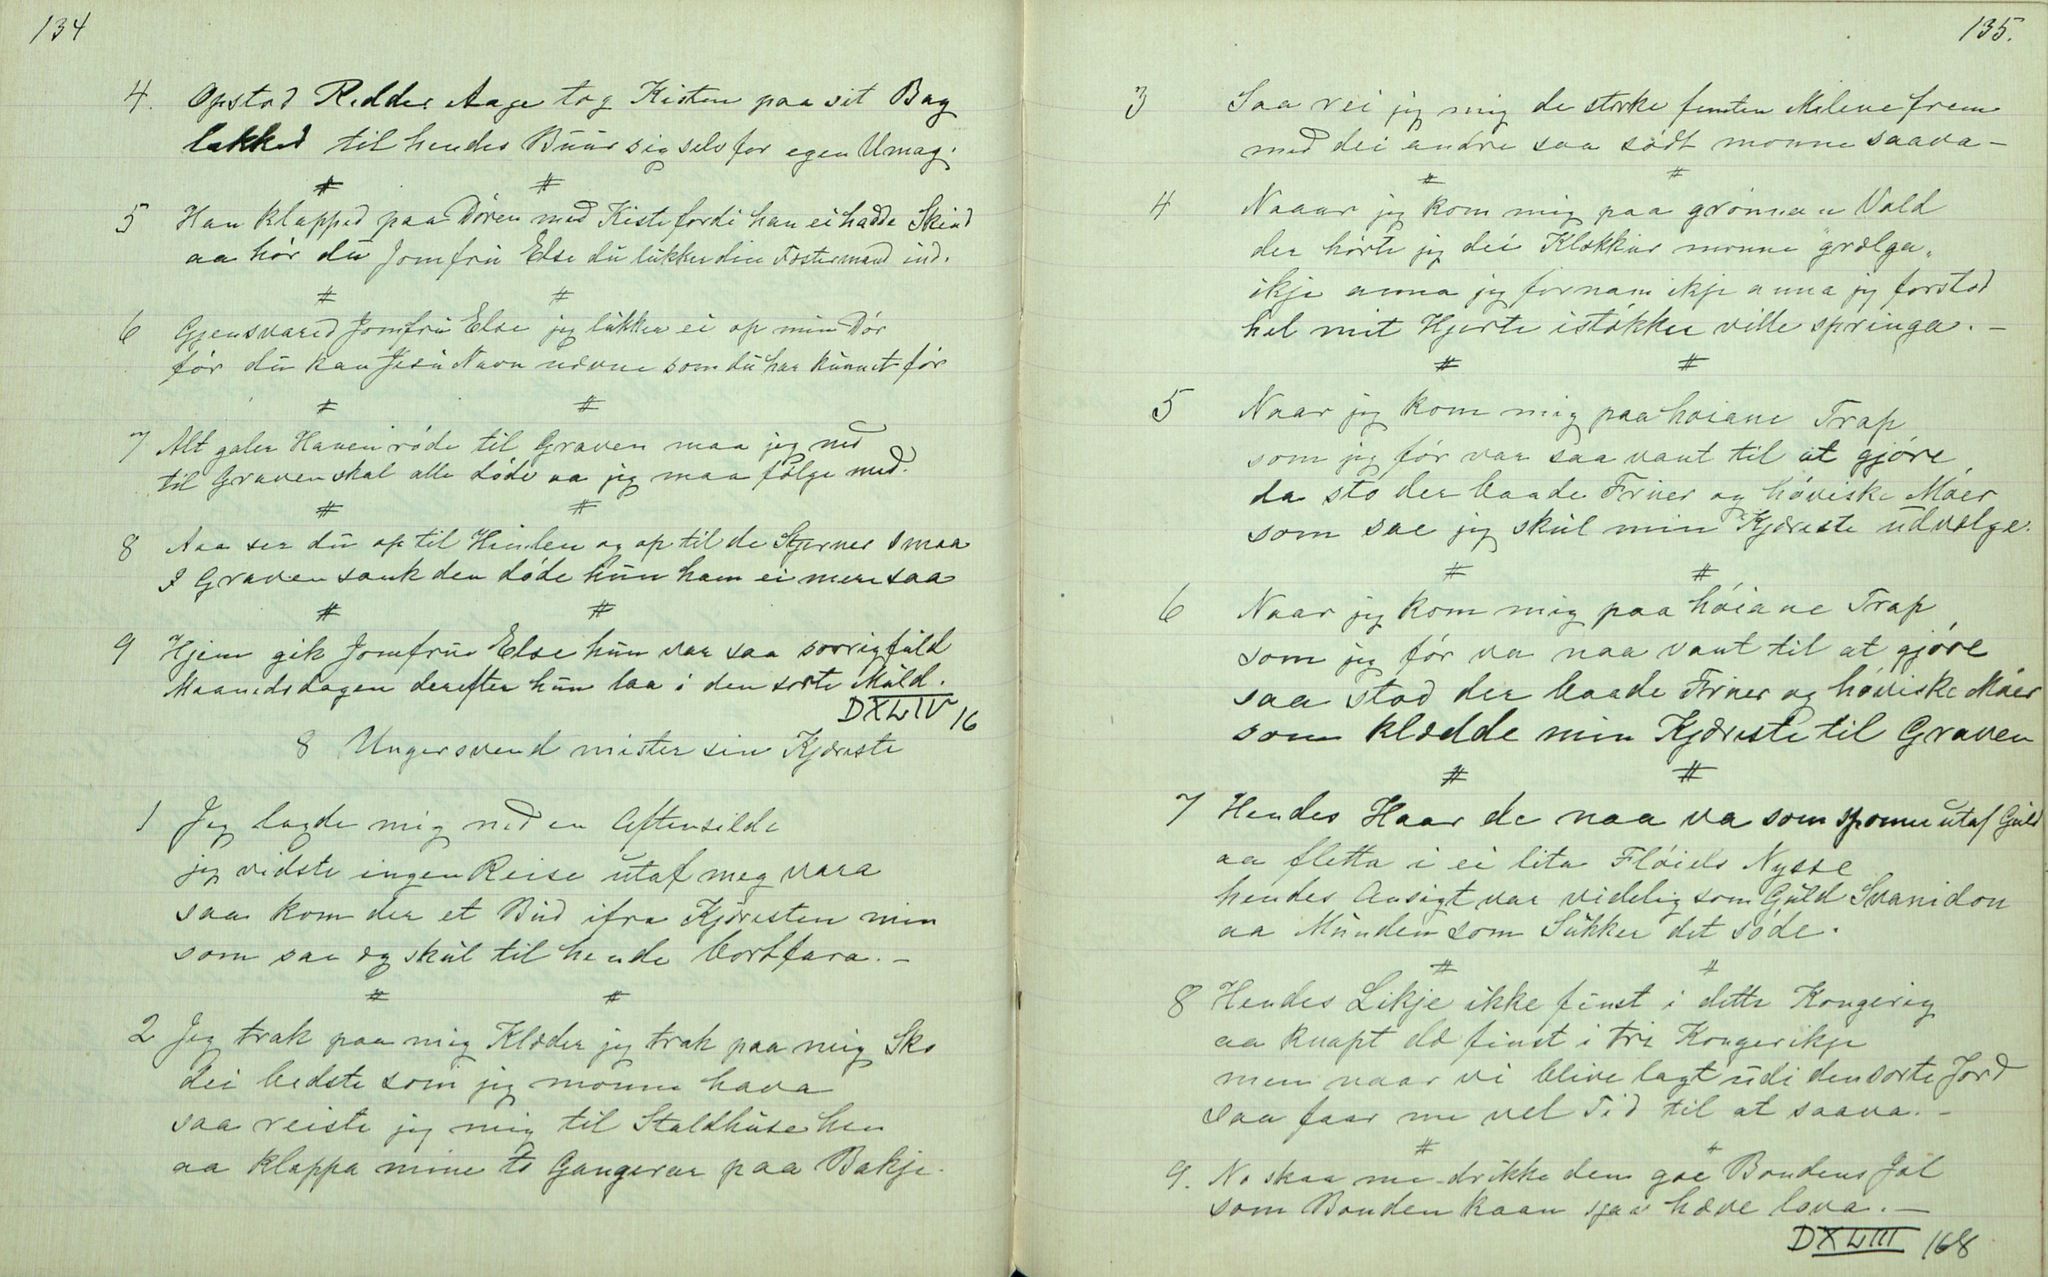 134
4. Opstod Ridder Aage tog Kisten paa sit Bag
lakked til hendes Buur sig selv for egen Umag.
# #
5 Han klapped paa Dören med Kiste fordi han ei hadde Skind
aa hör du Jomfru Else du lukker din Fæstermand ind.
# #
6 Gjensvared Jomfru Else jeg lukker ei op min Dör
för du kan Jesu Navn nævne som du har kunnet för
# #
7 Alt galer Hanen röde til Graven maa jeg ned
til Graven skal alle döde aa jeg maa fölge med.
# #
8 Aaa ser du op til Himlen og op til de Stjerner smaa
I Graven sank den döde hun ham ei mere saa
# #
9 Hjem gik Jomfru Else hun var saa sorrigfuld
Maanedsdagen derefter hun laa i den sorte Muld.
DXLIV 16
8 Ungersvend mister sin Kjæreste
1 Jeg lagde mig ned en Aftensilde
jeg vidste ingen Reise utaf meg vara
saa kom der et Bud ifra Kjæresten min
som sae eg skul til hende bortfara. –
# #
2 Jeg trak paa mig Klæder jeg trak paa mig Sko
dei bedste som jeg monne hava
saa reiste jeg mig til Staldhuse hen
aa klappa mine to Gangerar paa Bakje.
135.
3 Saa rei jeg mig de storke femten Milene frem
med dei andre saa södt monne saava –
# #
4 Naaar jeg kom mig paa grönnan Vold
der hörte jeg dei Klokkur monne "grælga"
ikje anna jeg fornam ikje anna jeg forstod
hel mit Hjerte istökker ville springa. –
# #
5 Naar jeg kom mig paa höiane Trap
som jeg för var saa vant til at gjöre
da sto der baade Fruer og höviske Möer
som sae jeg skul min Kjæreste udvælge.
# #
6 Naar jeg kom mig paa höiane Trap
som jeg för va naa vant til at gjöre
saa stod der baade Fruer og höviske Möer
som klædde min Kjæreste til Graven
# #
7 Hendes Haar de naa va som sponne utaf Guld
aa fletta i ei lita Flöiels Nysse
hendes Ansigt var videlig som Guld Svanidon
aa Munden som Sukker det söde.
# #
8 Hendes Likje ikke finst i dette Kongerig
aa knapt dæ finst i tri Kongerikje
men naar vi blive lagt udi den sorte Jord
saa faar me vel Tid til at saava. –
# #
9. No skaa me drikke dem goe Bondens Jol
som Bonden kaan sjav hæve lava. –
DXLIII 168